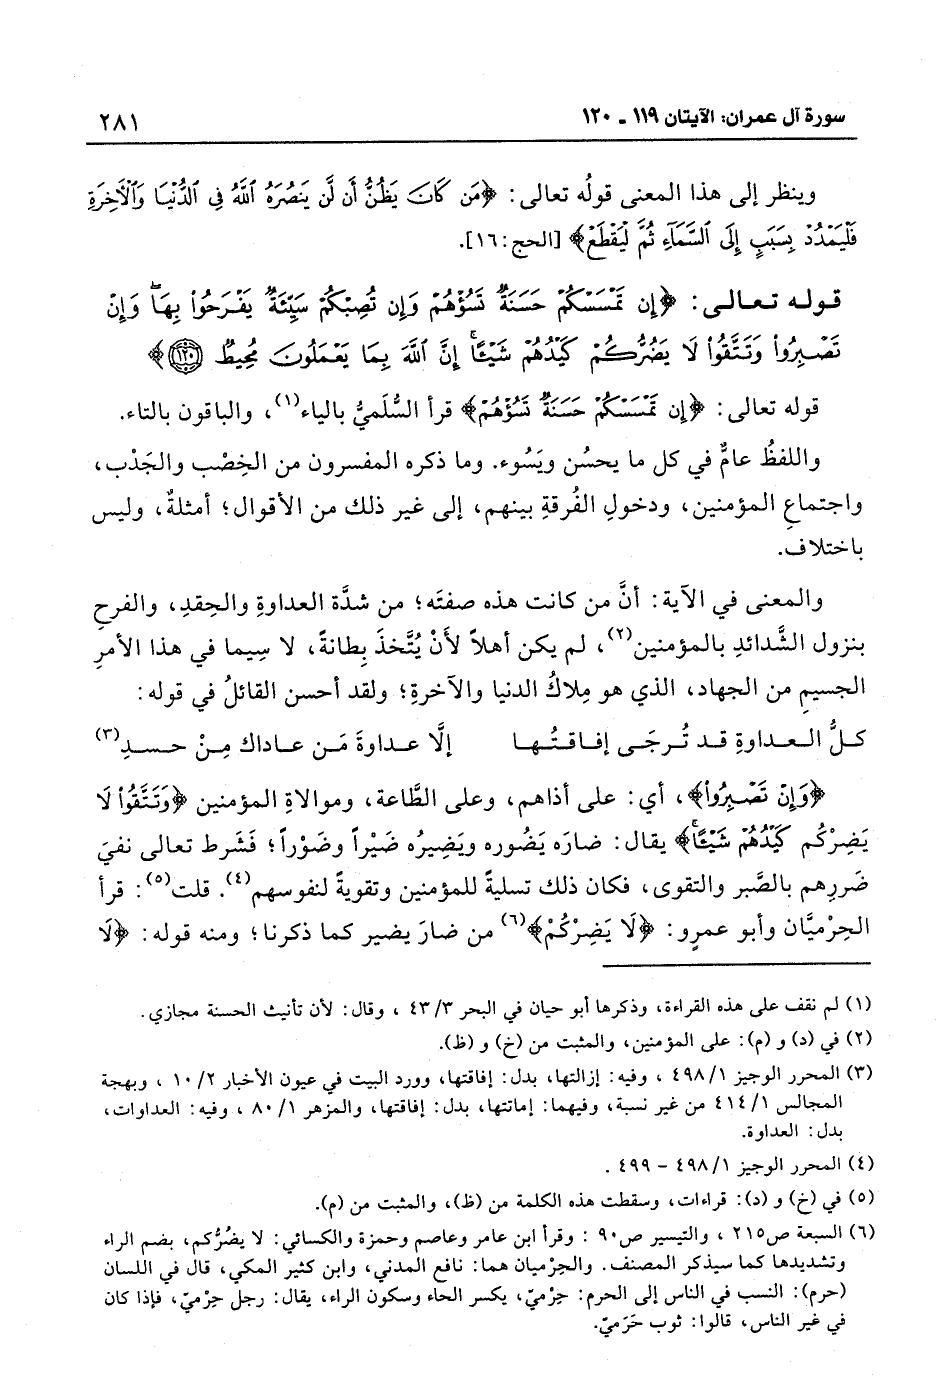 سورة آل عمران: الآيتان ١١٩ ـ ١٢٠ ٢٨١
وينظر إلى هذا المعنى قولُه تعالى: ﴿مَن كَانَ يَظُنُّ أَن لَّن يَنصُرَهُ ٱللَّهُ فِى ٱلدُّنْيَا وَٱلْأَخِرَةِ
فَلْيَمْدُدْ بِسَبَبٍ إِلَى ٱلسَّمَآءِ ثُمَّ لْيَقْطَعْ﴾ [الحج: ١٦].
قوله تعالى: ﴿إِن تَمْسَسْكُمْ حَسَنَةٌ تَسُؤْهُمْ وَإِن تُصِبْكُمْ سَيِّئَةٌ يَفْرَحُواْ بِهَا وَإِن
تَصْبِرُواْ وَتَتَّقُواْ لَا يَضُرُّكُمْ كَيْدُهُمْ شَيْـًٔا إِنَّ ٱللَّهَ بِمَا يَعْمَلُونَ مُحِيطٌ (١٢٠)﴾
قوله تعالى: ﴿إِن تَمْسَسْكُمْ حَسَنَةٌ تَسُؤْهُمْ﴾ قرأ السُّلَميُّ بالياء(١)، والباقون بالتاء.
واللفظُ عامٌّ في كل ما يحسُن ويَسُوء. وما ذكره المفسرون من الخِصْب والجَدْب،
واجتماعِ المؤمنين، ودخولِ الفُرقةِ بينهم، إلى غير ذلك من الأقوال؛ أمثلةٌ، وليس
باختلاف.
والمعنى في الآية: أنَّ من كانت هذه صفتَه؛ من شدَّة العداوةِ والحِقدِ، والفرحِ
بنزول الشَّدائدِ بالمؤمنين(٢)، لم يكن أهلاً لأَنْ يُتَّخذَ بِطانةً، لا سِيما في هذا الأمرِ
الجسيمِ من الجهاد، الذي هو مِلاكُ الدنيا والآخرةِ؛ ولقد أحسن القائلُ في قوله:
كلُّ العداوةِ قد تُرجَى إفاقتُها إلَّا عداوةَ مَن عاداك مِنْ حسدِ(٣)
﴿وَإِن تَصْبِرُواْ﴾، أي: على أذاهم، وعلى الطَّاعة، وموالاةِ المؤمنين ﴿وَتَتَّقُواْ لَا
يَضِرْكُم كَيْدُهُمْ شَيْـًٔا﴾ يقال: ضارَه يَضُوره ويَضِيرُه ضَيْراً وضَوْراً؛ فَشَرط تعالى نفيَ
ضَررِهم بالصَّبر والتقوى، فكان ذلك تسليةً للمؤمنين وتقويةً لنفوسهم(٤). قلت(٥): قرأ
الحِرْميَّان وأبو عمرٍو: ﴿لَا يَضِرْكُمْ﴾(٦) من ضارَ يضير كما ذكرنا؛ ومنه قوله: ﴿لَا
(١) لم نقف على هذه القراءة، وذكرها أبو حيان في البحر ٤٣/٣ ، وقال: لأن تأنيث الحسنة مجازي.
(٢) في (د) و (م): على المؤمنين، والمثبت من (خ) و (ظ).
(٣) المحرر الوجيز ٤٩٨/١ ، وفيه: إزالتها، بدل: إفاقتها، وورد البيت في عيون الأخبار ١٠/٢ ، وبهجة
المجالس ٤١٤/١ من غير نسبة، وفيهما: إماتتها، بدل: إفاقتها، والمزهر ٨٠/١ ، وفيه: العداوات،
بدل: العداوة.
(٤) المحرر الوجيز ٤٩٨/١ - ٤٩٩ .
(٥) في (خ) و (د): قراءات، وسقطت هذه الكلمة من (ظ)، والمثبت من (م).
(٦) السبعة ص٢١٥ ، والتيسير ص٩٠ : وقرأ ابن عامر وعاصم وحمزة والكسائي: لا يضُرُّكم، بضم الراء
وتشديدها كما سيذكر المصنف. والحِرْميان هما: نافع المدني، وابن كثير المكي، قال في اللسان
(حرم): النسب في الناس إلى الحرم: حِرْميّ، بكسر الحاء وسكون الراء، يقال: رجل حِرْميّ، فإذا كان
في غير الناس، قالوا: ثوب حَرَميّ.